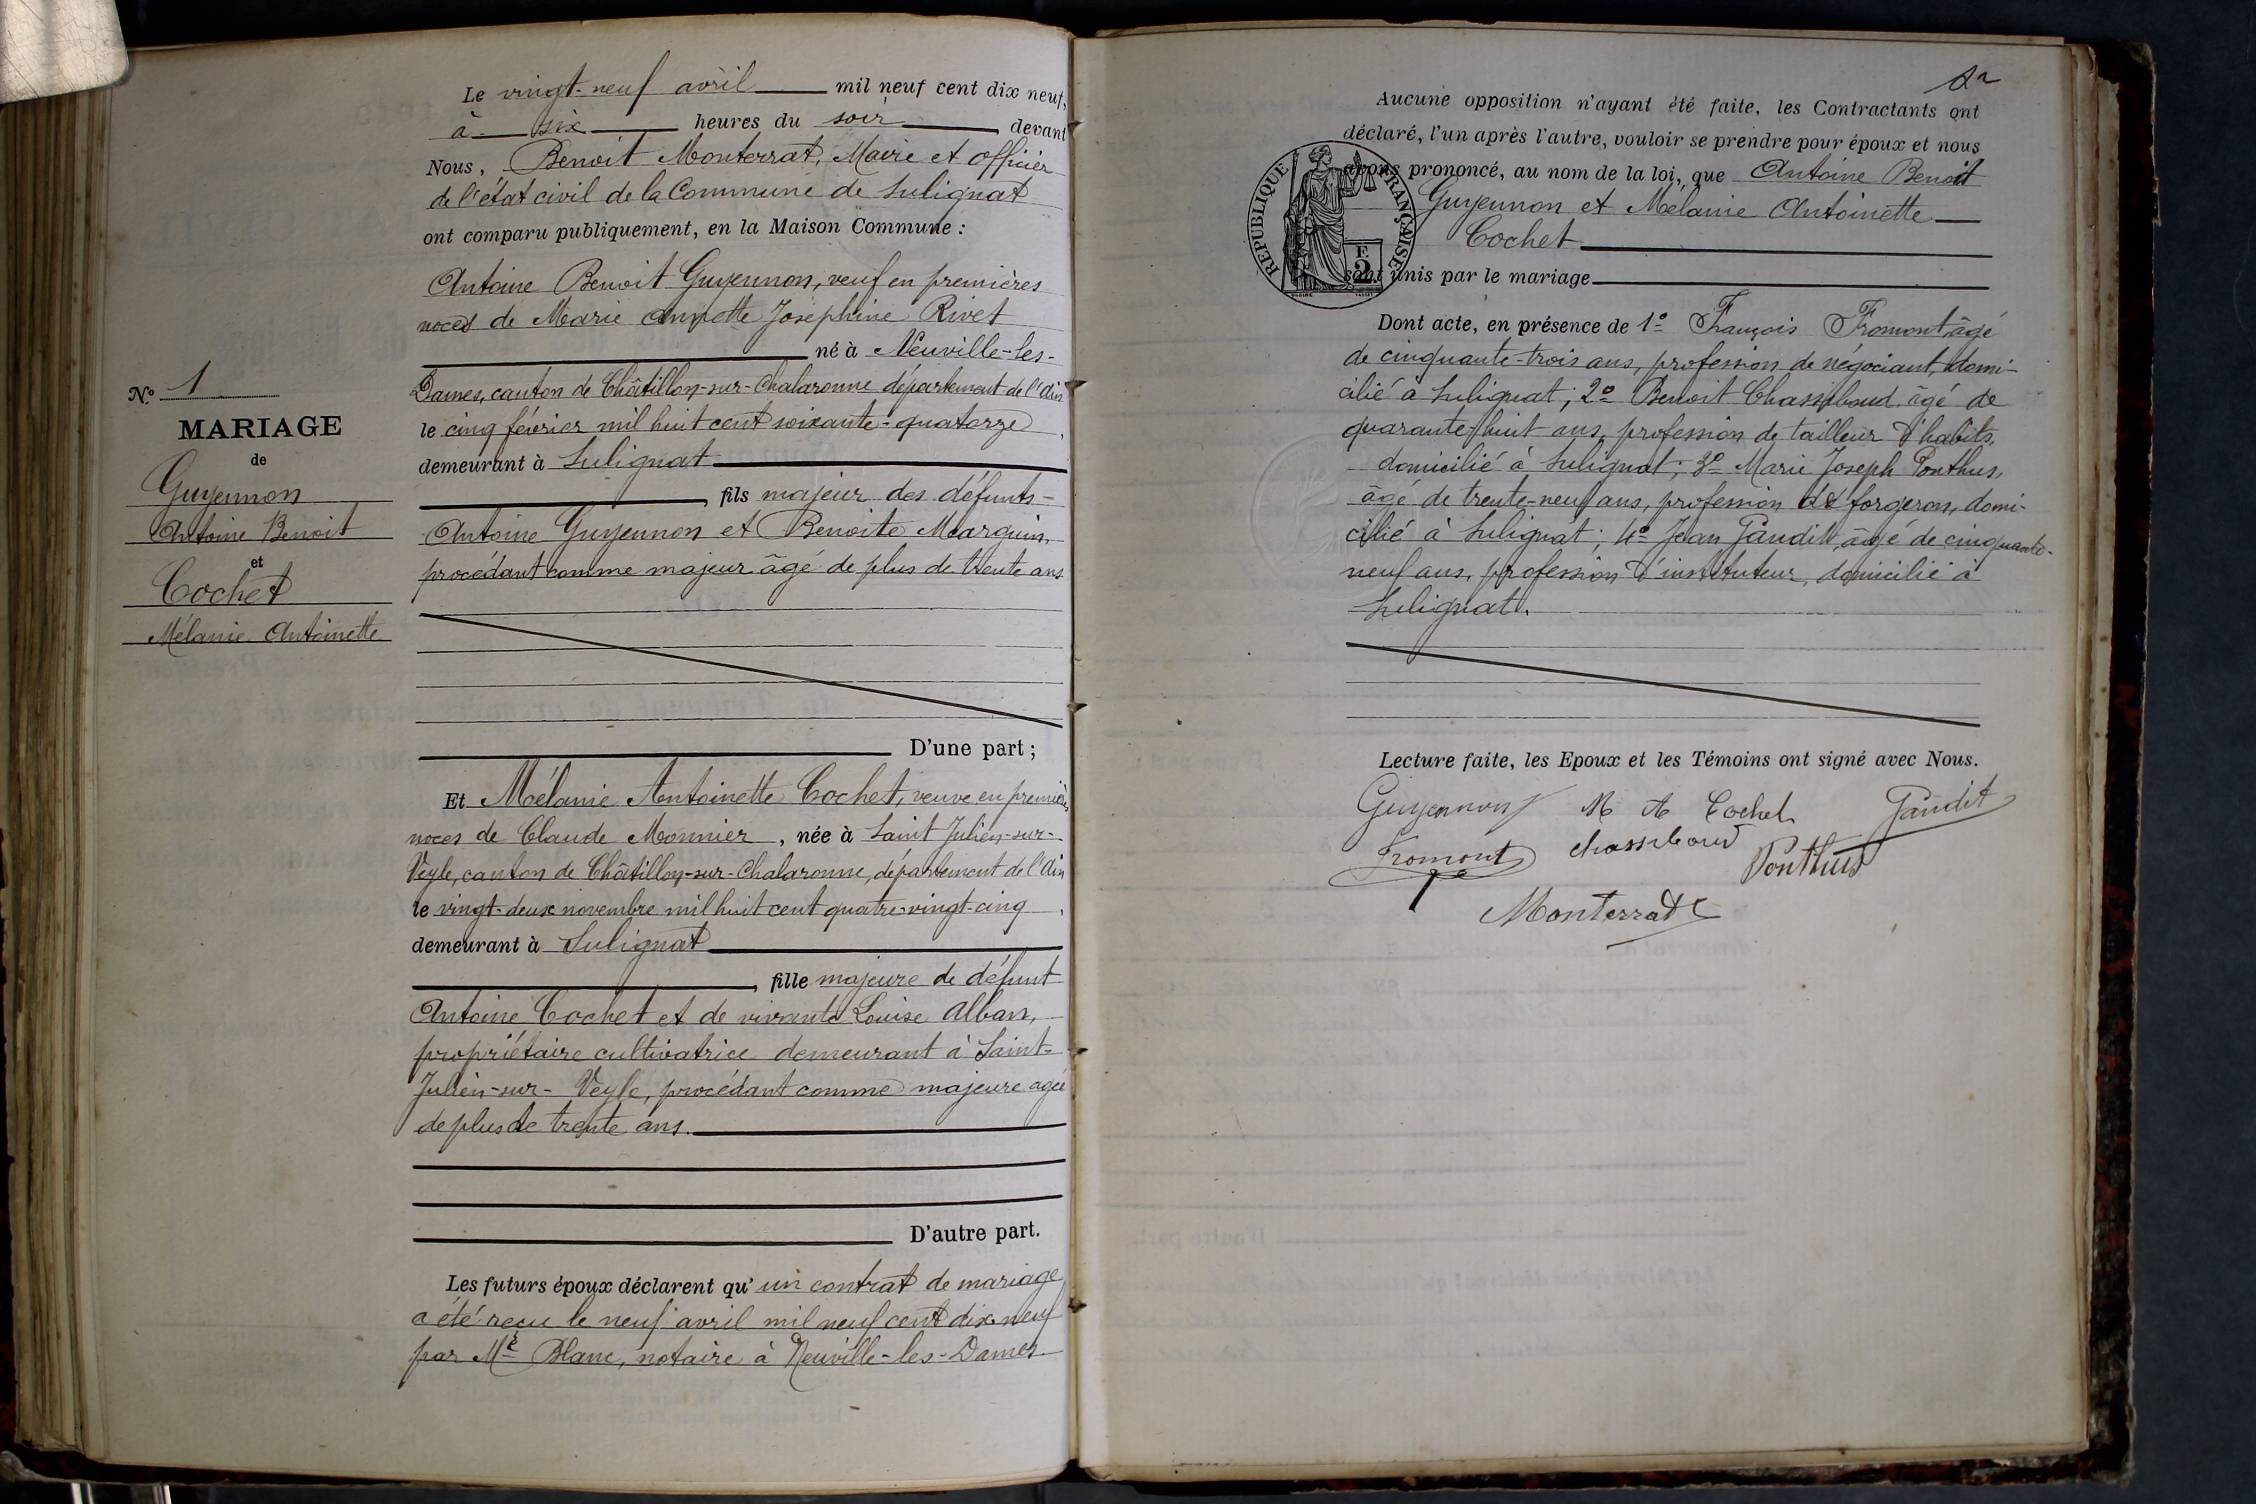 Le vingt-neuf avril mil neuf cent dix neuf,
à six heures du soir devant
Nous, Benoit Monterrat, Maire et officier
de l'état civil de la Commune de Sulignat
ont comparu publiquement, en la Maison Commune :
Antoine Benoit Guyennon, veuf en premières
noces de Marie Josephine Rivet
né à Neuville-les-
Dames, canton de Châtillon-sur-Chalaronne département de l'Ain
le cinq février mil huit cent soixante-quatorze,
demeurant à Sulignat
, fils majeur des défunts-
Antoine Guyennon et Benoite Marguin,
procédant comme majeur âgé de plus de trente ans
D'une part ;
Et Mélanie Antoinette Cochet, veuve en premières
noces de Claude Monnier, née à Saint Julien-sur-
Veyle, canton de Châtillon-sur-Chalaronne, département de l'Ain
le vingt-deux novembre mil huit cent quatre-vingt-cinq,
demeurant à Sulignat
, fille majeure de défunt
Antoine Cochet et de vivante Louise Alban,
propriétaire cultivatrice demeurant à Saint-
Julien-sur-Veyle, procédant comme majeure agée
de plus de trente ans.
D'autre part.
Les futurs époux déclarent qu'un contrat de mariage
a été reçu le neuf avril mil neuf cent dix-neuf
par Me Blanc, notaire à Neuville-les-Dames
N.o 1
MARIAGE
de
Guyennon
Antoine Benoit
et
Cochet
Mélanie Antoinette
Aucune opposition n'ayant été faite, les Contractants ont
déclaré, l'un après l'autre, vouloir se prendre pour époux et nous
avons prononcé, au nom de la loi, que Antoine Benoit
Guyennon et Mélanie Antoinette
Cochet
sont unis par le mariage
REPUBLIQUE FRANÇAISE
2 F.
Dont acte, en présence de 1o François Fromont, âgé
de cinquante-trois ans, profession de négociant, domi-
cilié à Sulignat ; 2o Benoit Chassiboud, âgé de
quarante huit ans, profession de tailleur d'habits,
domicilié à Sulignat ; 3o Marie Joseph Ponthus,
âgé de trente-neuf ans, profession de forgeron, domi-
cilié à Sulignat ; 4o Jean Gaudit, âgé de cinquante-
neuf ans, profession d'instituteur, domicilié à
Sulignat.
Lecture faite, les Epoux et les Témoins ont signé avec Nous.
Guyennon M A Cochet Gaudit
Fromont Chassiboud Ponthus
Monterrat